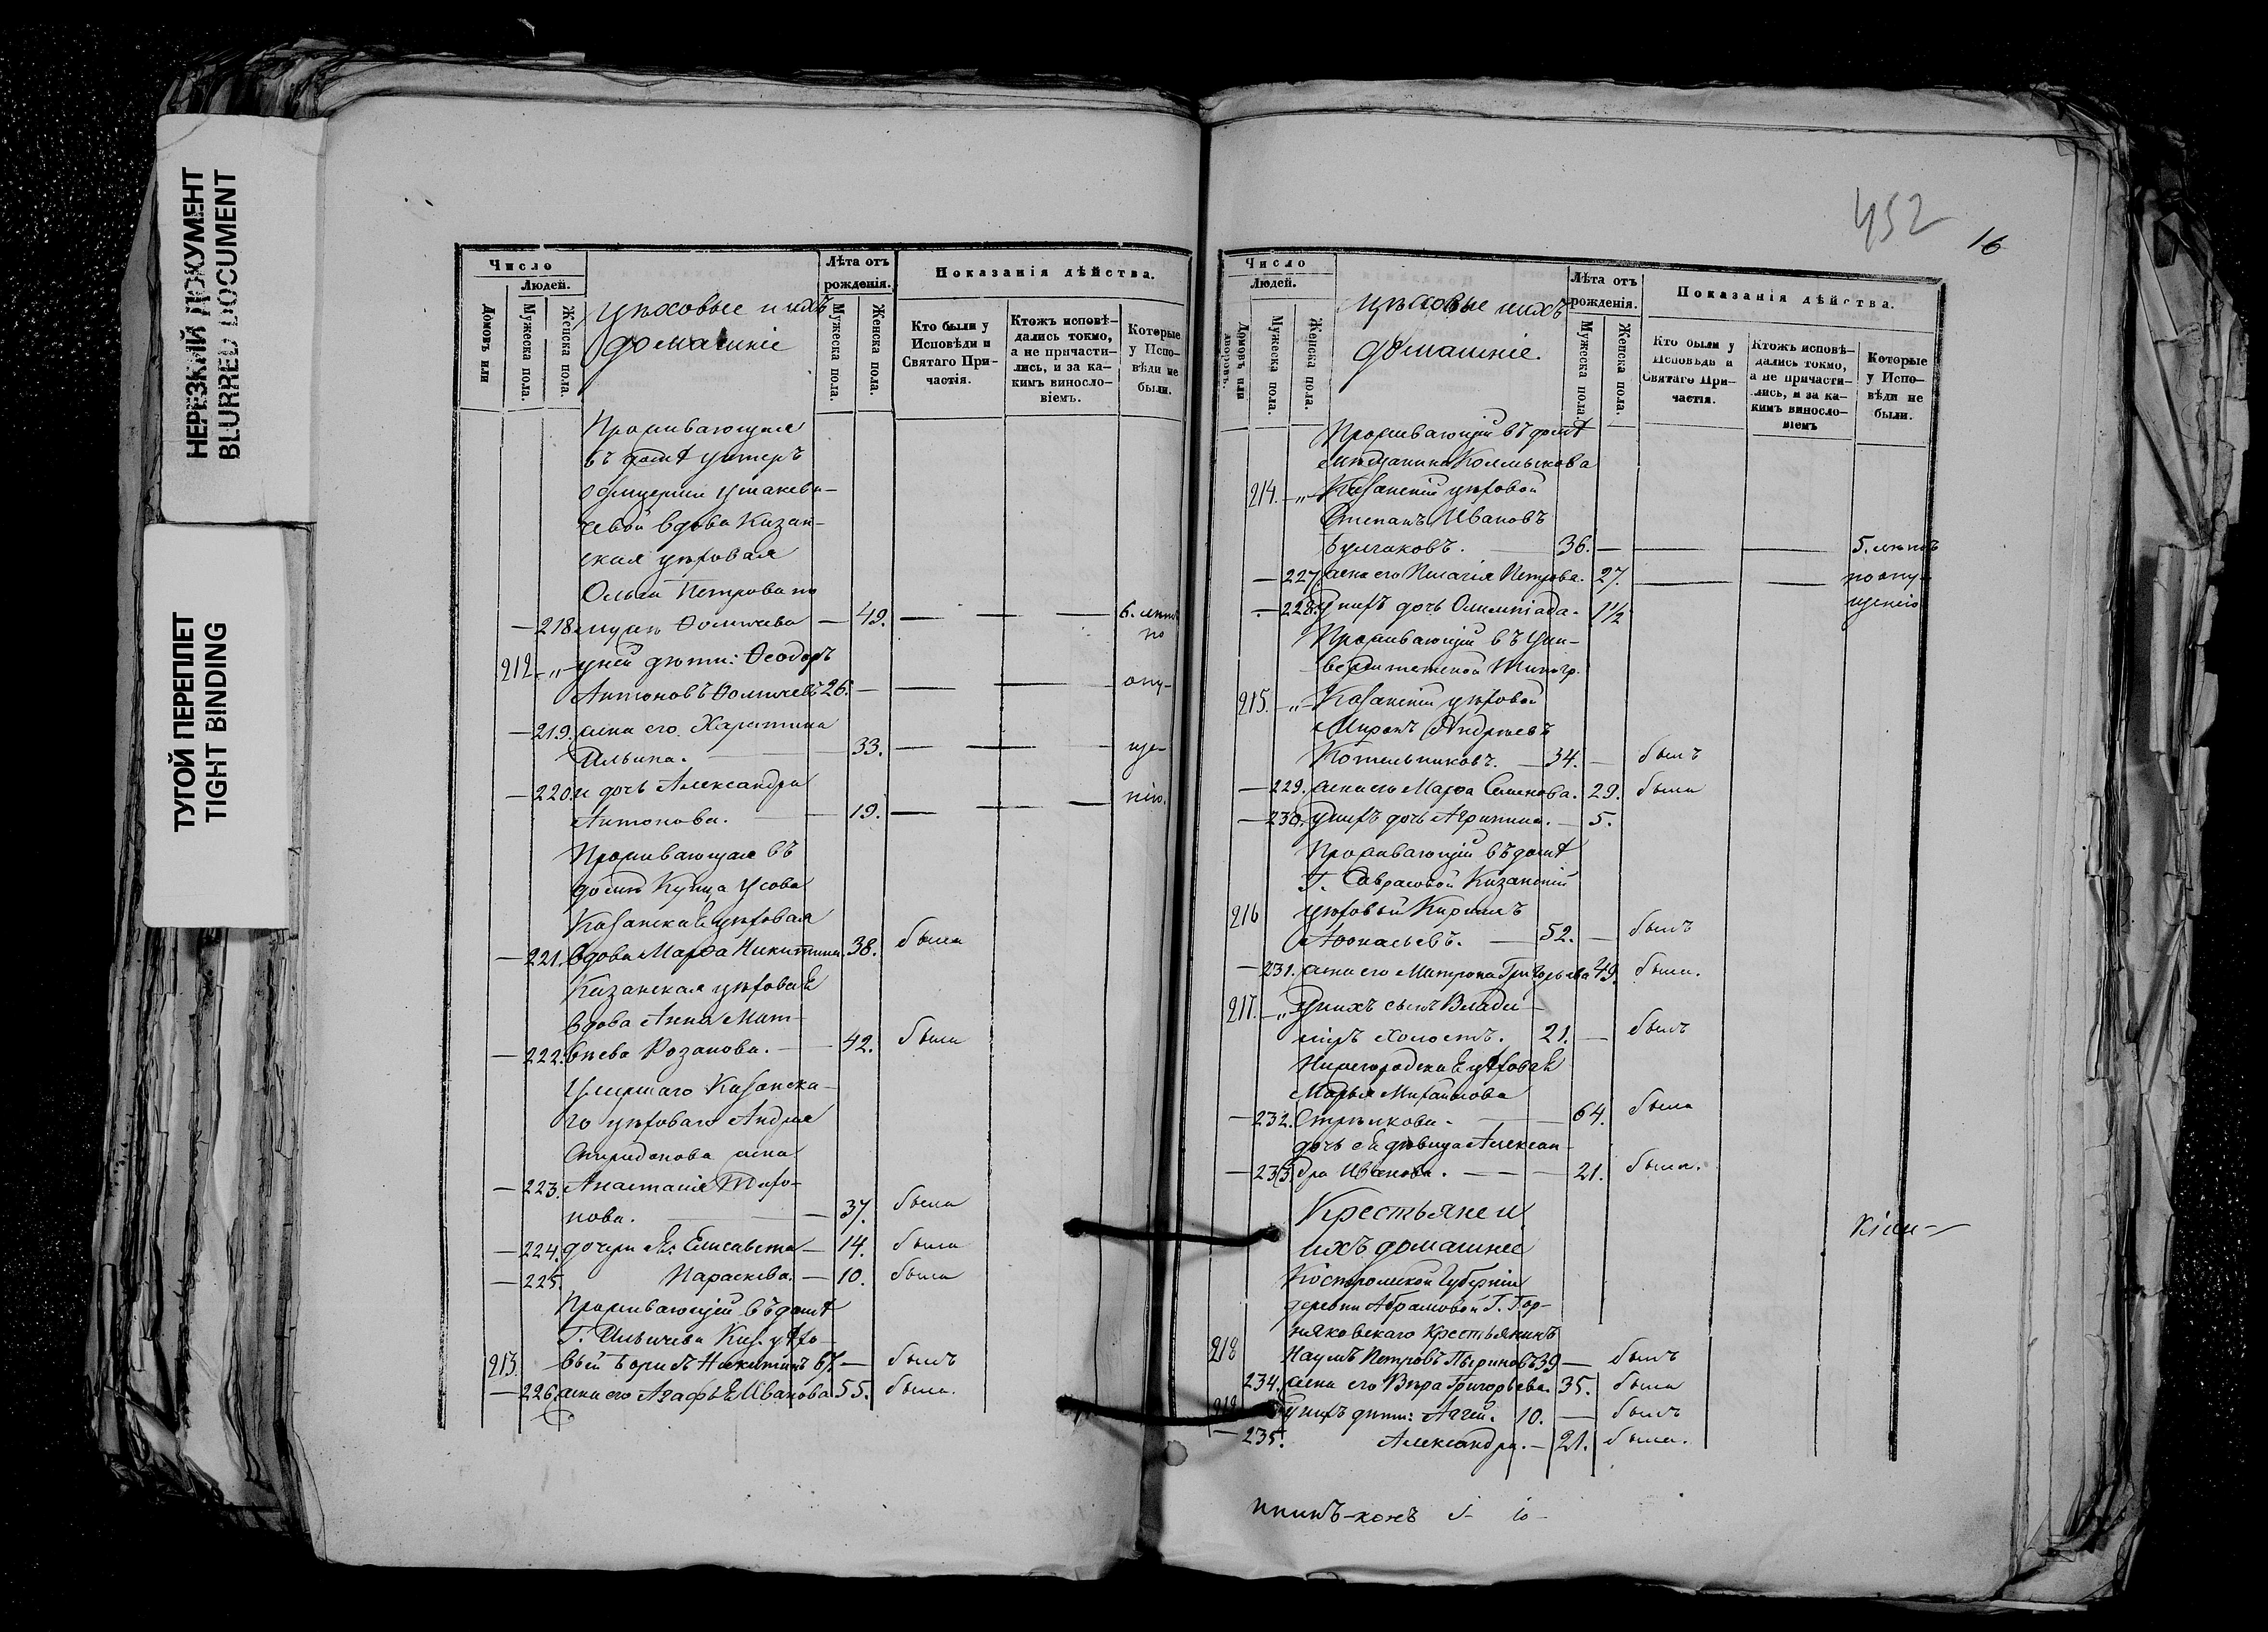 НЕРЕЗКИЙ ДОКУМЕНТ
BLURRED DOCUMENT
ТУГОЙ ПЕРЕПЛЕТ
TIGHT BINDING
Число
Людей.
Домовъ или
Мужеска пола.
Женска пола.
цѣховые и ихъ
домашніе
Лѣта отъ
рожденія.
Мужеска пола.
Женска пола.
Показанія дѣйства.
Кто были у
Исповѣди и
Святаго При-
частія.
Ктожъ исповѣ-
дались токмо,
а не причасти-
лись, и за ка-
кимъ винosло-
віемъ.
Которые
у Испо-
вѣди не
были.
Проживающая
въ домѣ унтеръ
офицерши
чевой вдова Казан-
ская цѣховая
Ольга Петрова по
— 218. мужу Ѳомичева — 49. — — — 6. лѣтъ
по
212. „ у ней дѣти: Ѳеодоръ
Антоновъ Ѳомичевъ 26. — — — — опу-
— 219. жена его Харитина
Ильина. — 33. — — — ще-
— 220. и дочь Александра
Антонова. — 19. — — — нію.
Проживающая въ
домѣ Купца Усова
Казанская цѣховая
— 221. вдова Марѳа Никитина. 38. была
Казанская цѣховая
вдова Анна Мат-
— 222. вѣева Розанова. — 42. была
Умершаго Казанска-
го цѣховаго Андрея
Спиридонова жена
— 223. Анастасія Тихо-
нова. — 37. была
— 224. дочери Ея: Елисавета — 14. была
— 225. Параскева. — 10. была
Проживающій въ домѣ
Г. Ильичева Каз. цѣхо-
213. вый Борисъ Никитинъ 67. — былъ
— 226. жена его Агафья Иванова 55. была.
452
16
Число
Людей.
Домовъ или
дворовъ.
Мужеска пола.
Женска пола.
цѣховые и ихъ
домашніе.
Лѣта отъ
рожденія.
Мужеска пола.
Женска пола.
Показанія дѣйства.
Кто были у
Исповѣди и
Святаго При-
частія.
Ктожъ исповѣ-
дались токмо,
а не причасти-
лись, и за ка-
кимъ винosло-
віемъ
Которые
у Испо-
вѣди не
были.
Проживающій въ домѣ
мѣщанина Колмыкова
214. — „ — Казанскій цѣховой
Степанъ Ивановъ
Булгаковъ. — 36. — — — 5. лѣтъ
— 227. жена его Пелагія Петрова. 27. — — по опу-
— 228. у нихъ дочь Олимпіада. 1½ щенію
Проживающій въ Уни-
верситетской Типогр.
215. — „ — Казанскій цѣховой
Миронъ Андреевъ
Котельниковъ. — 34. — былъ
— 229. жена его Марѳа Семенова. 29. была
— 230. у нихъ дочь Агрипина. — 5.
Проживающій въ домѣ
Г. Саврасовой Казанскій
216 цѣховый Кирилъ
Аѳонасьевъ. — 52. — былъ
— 231. жена его Матрона Григорьева 49. была.
217. — „ У нихъ сынъ Влади-
міръ холостъ. 21. — былъ
Нижегородская цѣховая
Марья Михайлова
— 232. Стрѣлкова. — 64. была
дочь ея дѣвица Алексан-
— 233. дра Иванова. — — 21. была.
Крестьяне и
ихъ домашнее
Костромской Губерніи
деревни Абрамовой Г. Гор-
няковскаго Крестьянинъ
218 Наумъ Петровъ Пыриновъ 39 — былъ
234. жена его Вѣра Григорьева. 35. была
219 у нихъ дѣти: Аггей. 10. — былъ
— 235. Александра. — 21. была.